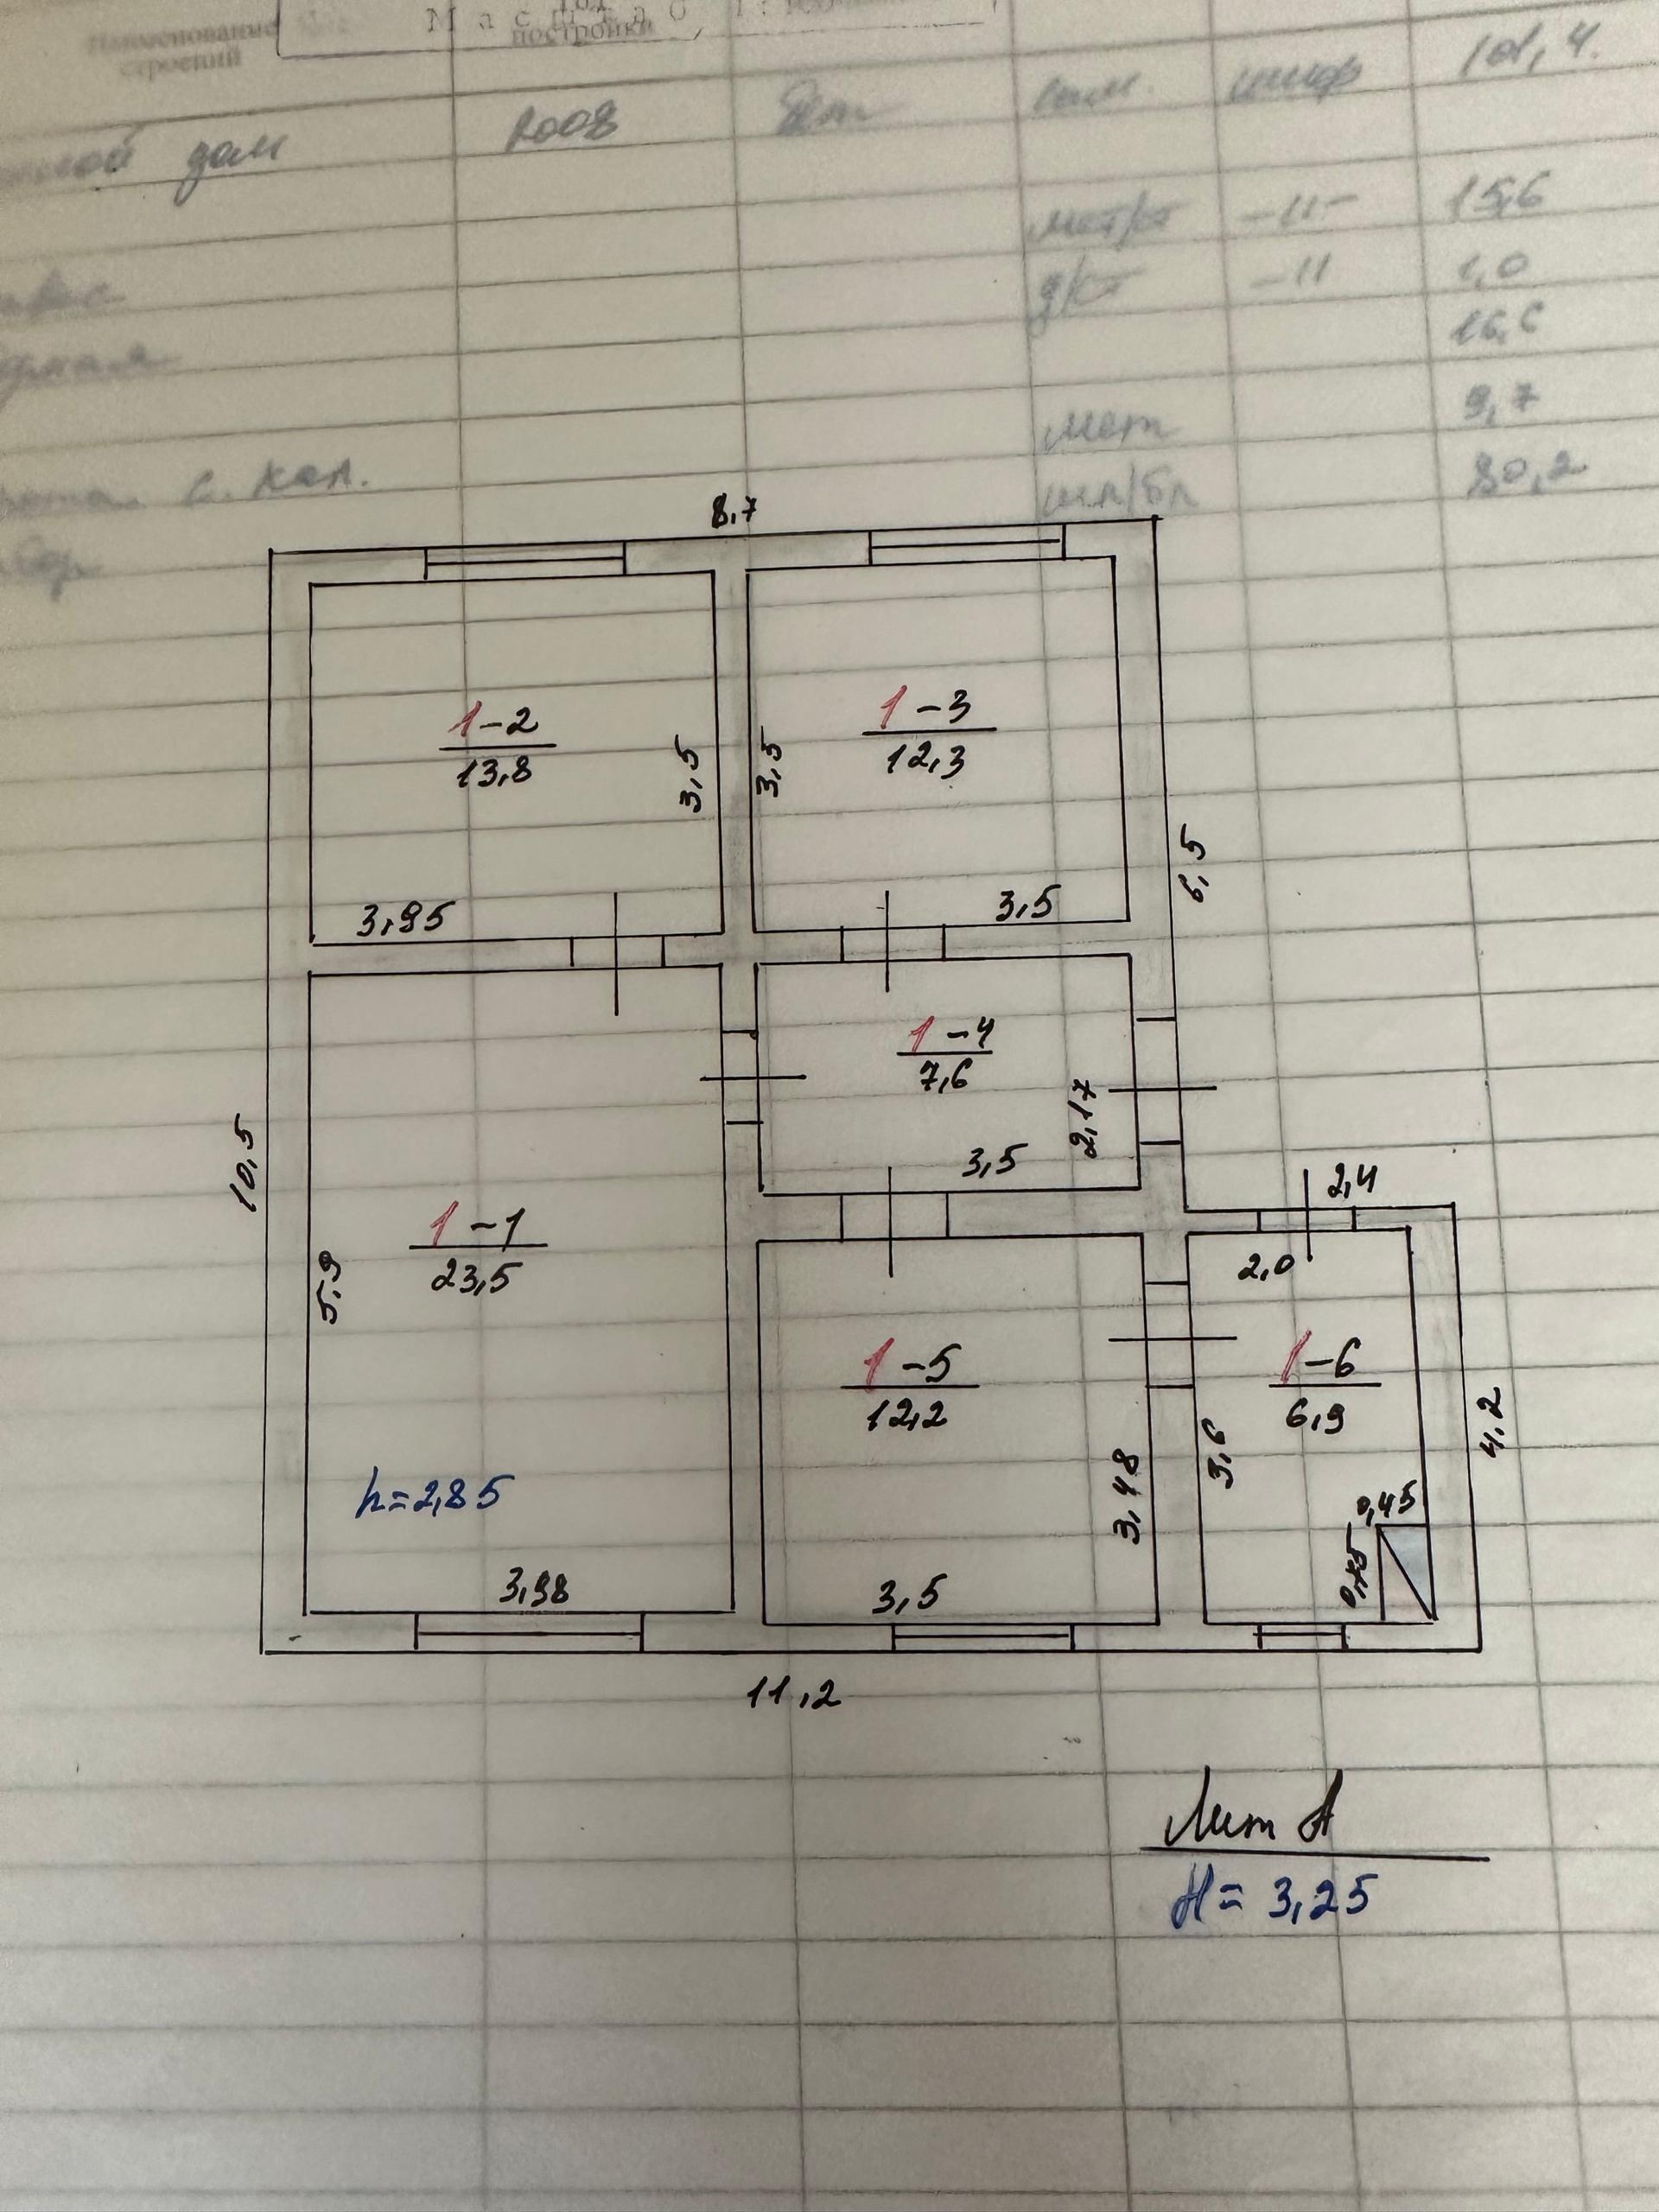 Наименование строений
Масштаб 1:100
постройки
жилой дом 2008
15,6
1,0
16,6
9,7
80,2
8,7
1-2
13,8
3,5
3,95
1-3
12,3
3,5
3,5
6,5
1-4
7,6
2,17
3,5
10,5
1-1
23,5
5,9
h=2,85
3,98
1-5
12,2
3,48
3,5
2,4
2,0
1-6
6,9
3,6
4,2
0,45
11,2
Лит А
H=3,25